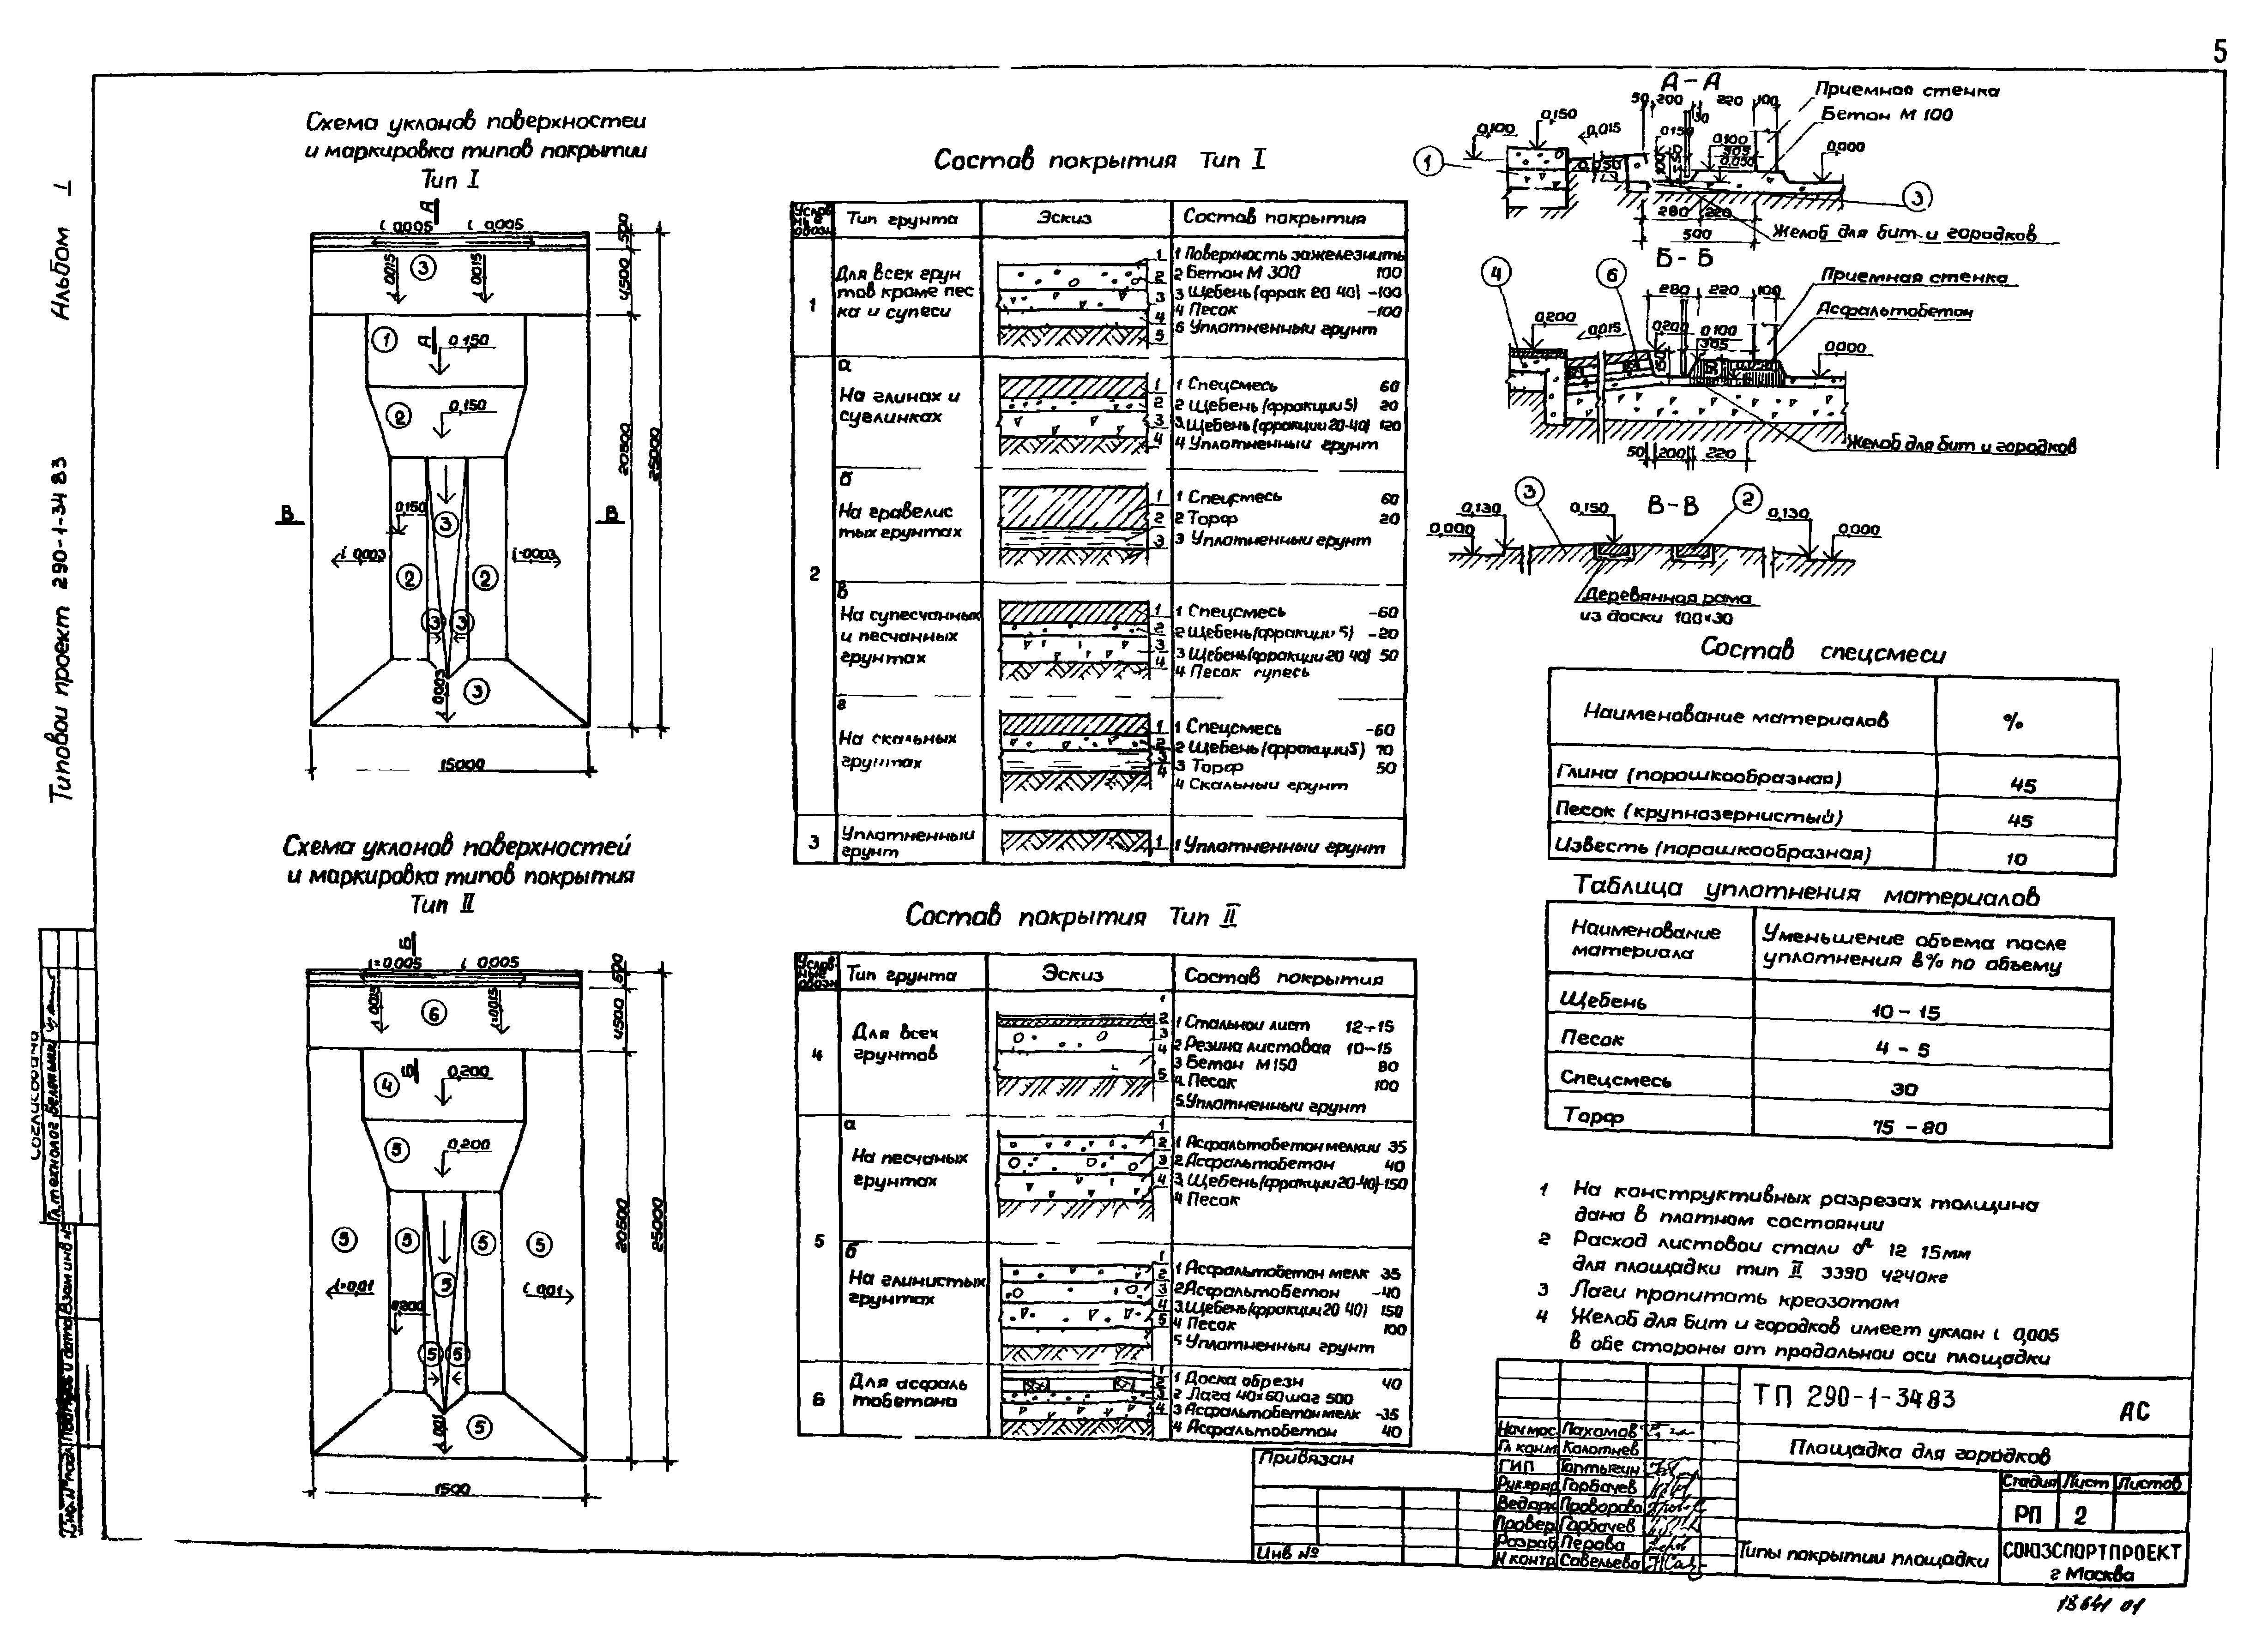 5
Альбом I
Типовой проект 290-1-34 83
Схема уклонов поверхностей
и маркировка типов покрытии
Тип I
А
i 0,005 i 0,005
500
3
i 0,015
i 0,015
4500
1
А
0,150
2
0,150
20500
25000
В
В
0,150
3
i 0,003
i-0,003
2
2
3
3
0,005
3
15000
Схема уклонов поверхностей
и маркировка типов покрытия
Тип II
Б
i=0,005 i 0,005
500
i 0,015
6
i=0,015
4500
4
Б
0,200
5
0,200
20500
25000
5
5
5
5
5
i=0,01
i 0,01
0,200
5
5
i 0,01
5
1500
Состав покрытия Тип I
Услов
ны е
обозн
Тип грунта
Эскиз
Состав покрытия
1
Для всех грун
тов кроме пес
ка и супеси
1
2
3
4
5
1 Поверхность зажелезнить
2 Бетон М 300 100
3 Щебень (фрак 20 40) -100
4 Песок -100
5 Уплотненный грунт
2
а
На глинах и
суглинках
1
2
3
4
1 Спецсмесь 60
2 Щебень (фракции 5) 20
3. Щебень (фракции 20-40) 120
4 Уплотненный грунт
б
На гравелис
тых грунтах
1
2
3
1 Спецсмесь 60
2 Торф 20
3 Уплотненный грунт
в
На супесчанных
и песчанных
грунтах
1
2
3
4
1 Спецсмесь -60
2 Щебень (фракции 5) -20
3 Щебень (фракции 20 40) 50
4 Песок супесь
г
На скальных
грунтах
1
2
3
4
1 Спецсмесь -60
2 Щебень (фракции 5) 70
3 Торф 50
4 Скальный грунт
3
Уплотненный
грунт
1
1 Уплотненный грунт
Состав покрытия Тип II
Услов
ные
обозн
Тип грунта
Эскиз
Состав покрытия
4
Для всех
грунтов
1
2
3
4
5
1 Стальной лист 12-15
2 Резина листовая 10-15
3 Бетон М150 80
4. Песок 100
5. Уплотненный грунт
5
а
На песчаных
грунтах
1
2
3
4
1 Асфальтобетон мелкий 35
2 Асфальтобетон 40
3. Щебень (фракции 20-40) -150
4 Песок
б
На глинистых
грунтах
1
2
3
4
5
1 Асфальтобетон мелк 35
2 Асфальтобетон -40
3. Щебень (фракции 20 40) 150
4 Песок 100
5 Уплотненный грунт
6
Для асфаль
тобетона
1
2
3
4
1 Доска обрезн 40
2 Лага 40×60 шаг 500
3 Асфальтобетон мелк -35
4 Асфальтобетон 40
А-А
50 200 220 100
30
Приемная стенка
Бетон М 100
0,100
0,150
0,015
0,150
0,100
305
0,050
0,050
0,000
1
3
280 220
500
Желоб для бит и городков
Б-Б
4
6
280 220 100
Приемная стенка
Асфальтобетон
0,200
0,015
0,200
0,100
305
150
0,000
50 200 220
Желоб для бит и городков
В-В
3
2
0,130
0,150
0,130
0,000
0,000
Деревянная рама
из доски 100×30
Состав спецсмеси
Наименование материалов %
Глина (порошкообразная) 45
Песок (крупнозернистый) 45
Известь (порошкообразная) 10
Таблица уплотнения материалов
Наименование
материала
Уменьшение объема после
уплотнения в% по объему
Щебень 10-15
Песок 4-5
Спецсмесь 30
Торф 75-80
1 На конструктивных разрезах толщина
дана в плотном состоянии
2 Расход листовой стали 12 15мм
для площадки тип II 3390 4240кг
3 Лаги пропитать креозотом
4 Желоб для бит и городков имеет уклон i 0,005
в обе стороны от продольной оси площадки
ТП 290-1-34 83
АС
Площадка для городков
Стадия Лист Листов
РП 2
Типы покрытии площадки
СОЮЗСПОРТПРОЕКТ
г Москва
Нач мас. Пахомов
Гл конм Колотнев
ГИП Таптыгин
Горбачев
Ведарх Проворова
Провер Горбачев
Разраб Перова
Н контр Савельева
Привязан
Инв №
Согласовано
Гл. технолог
Взам инв №
Подпись и дата
Инв. № подл.
18641 01